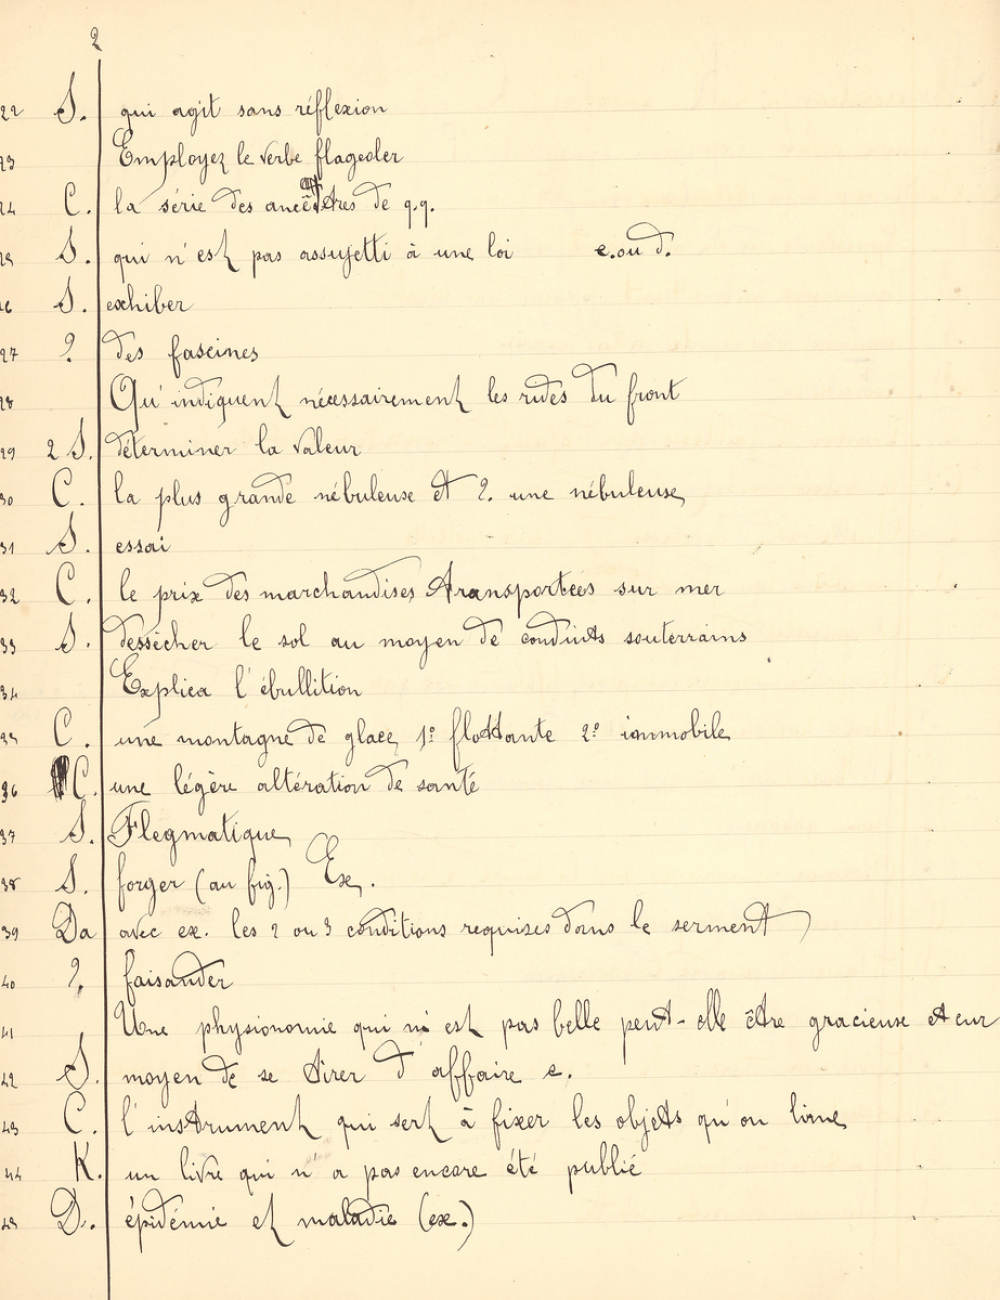 2
22 S. qui agit sans réflexion
23 Employez le verbe flageoler
24 C. la série des ancêtres de q.q.
25 S. qui n'est pas assujetti à une loi e. ou d.
26 S. exhiber
27 ? des fascines
28 Qu'indiquent nécessairement les rides du front
29 2 S. déterminer la valeur
30 C. la plus grande nébuleuse et ?. une nébuleuse
31 S. essai
32 C. le prix des marchandises transportées sur mer
33 S. dessécher le sol au moyen de conduits souterrains
34 Explica l'ébullition
35 C. une montagne de glace 1º flottante 2º immobile
36 C. une légère altération de santé
37 S. Flegmatique
38 S. forger (au fig.) Ex.
39 Da avec ex. les 2 ou 3 conditions requises dans le serment
40 ?. faisander
41 Une physionomie qui n'est pas belle peut-elle être gracieuse et cur
42 S. moyen de se tirer d'affaire e.
43 C. l'instrument qui sert à fixer les objets qu'on lime
44 K. un livre qui n'a pas encore été publié
45 D. épidémie et maladie (ex.)